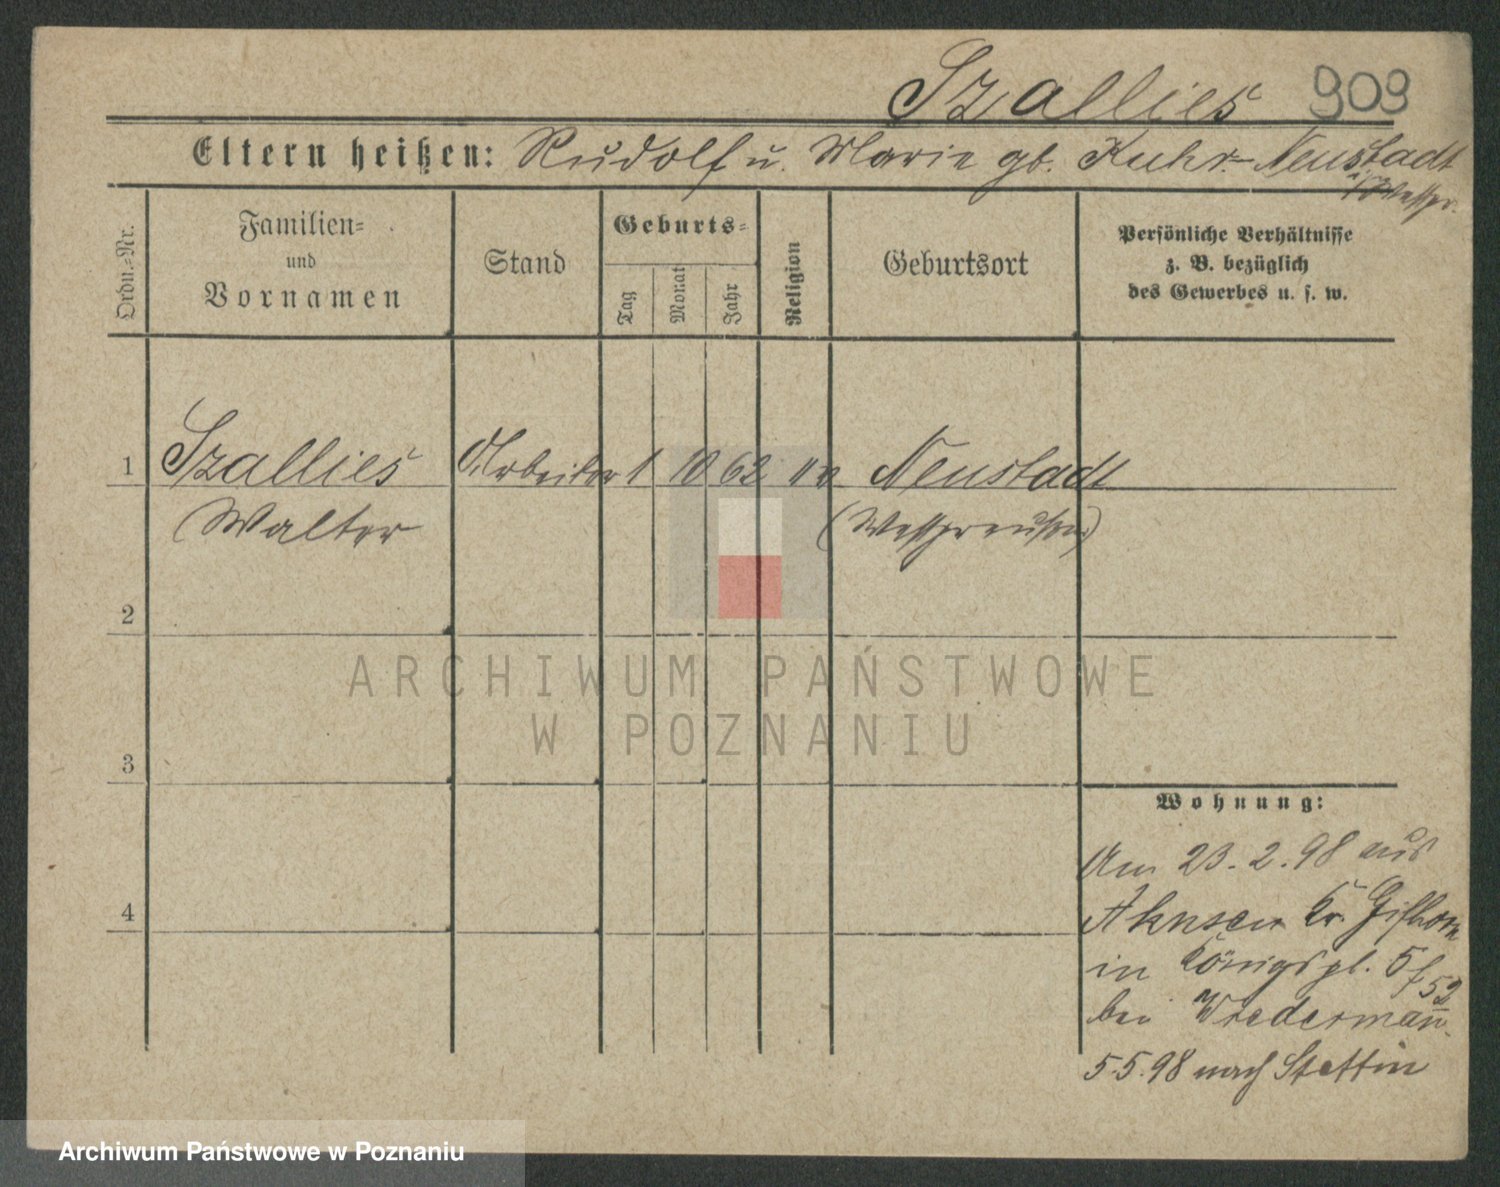 Szallies 909
Eltern heißen: Rudolf u. Marie gb. Kuhr - Neustadt
i/Westpr.
Ordn.-Nr.
Familien-
und
Vornamen
Stand
Geburts-
Tag
Monat
Jahr
Religion
Geburtsort
Persönliche Verhältnisse
z. B. bezüglich
des Gewerbes u. s. w.
1 Szallies Arbeiter 1 10 62 Neustadt
Walter (Westpreußen)
2
ARCHIWUM PAŃSTWOWE
W POZNANIU
3
Wohnung:
Am 23.2.98 aus
4
Ahnsen Kr. Gifhorn
in Königspl. 5
bei Wiedermann.
5.5.98 nach Stettin
Archiwum Państwowe w Poznaniu